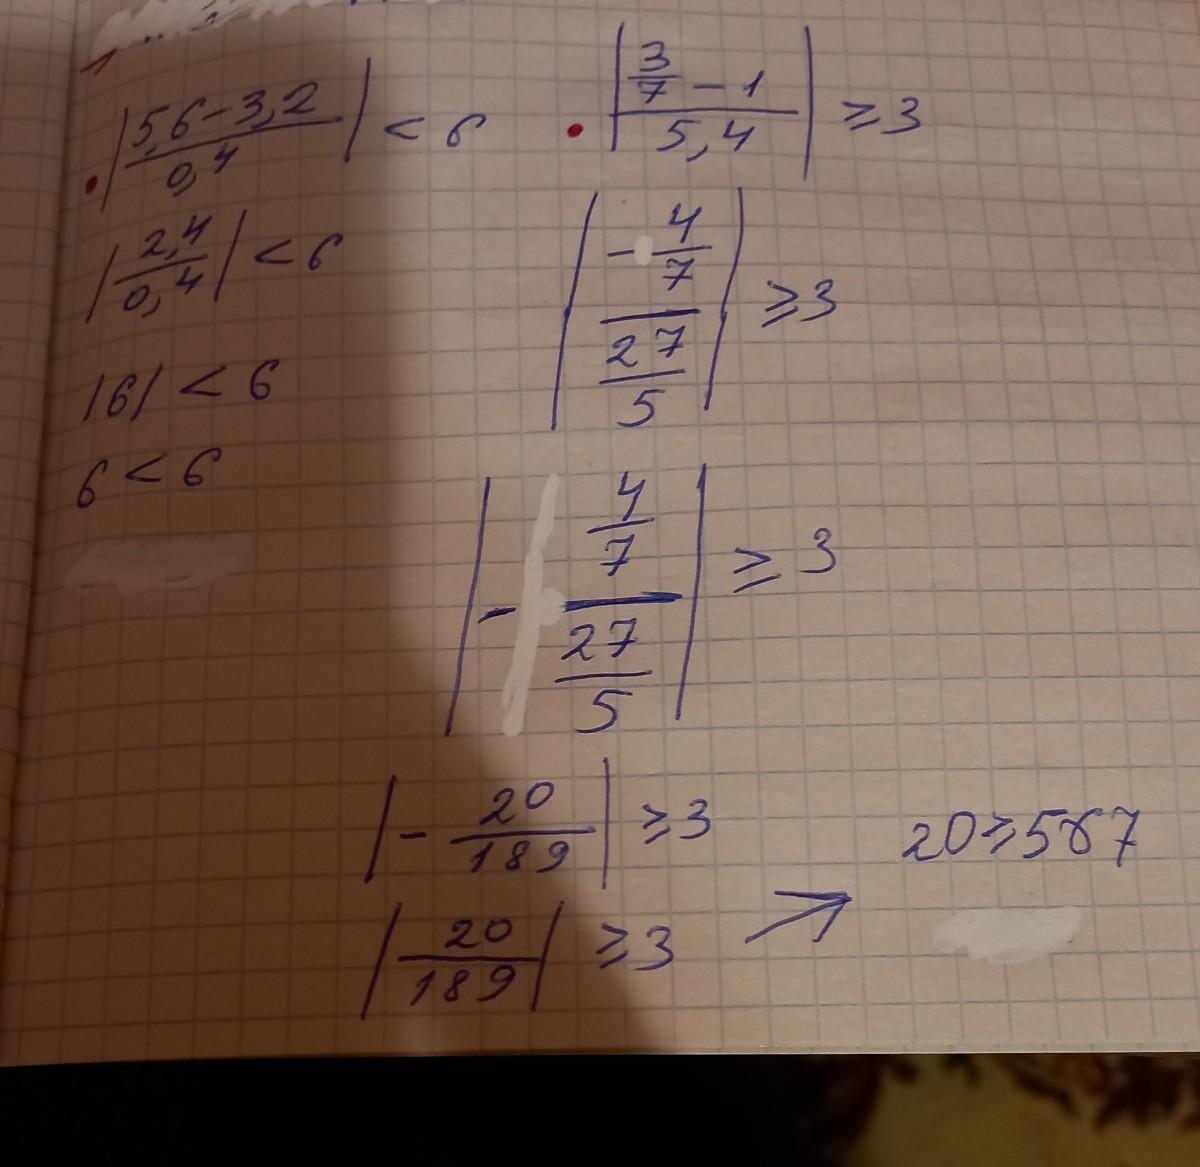 |5,6-3,2 / 0,4| < 6
|2,4 / 0,4| < 6
|6| < 6
6 < 6
|3/7 - 1 / 5,4| ⩾ 3
|- 4/7 / 27/5| ⩾ 3
|- 4/7 / 27/5| ⩾ 3
|- 20/189| ⩾ 3
|20/189| ⩾ 3
20 ⩾ 567